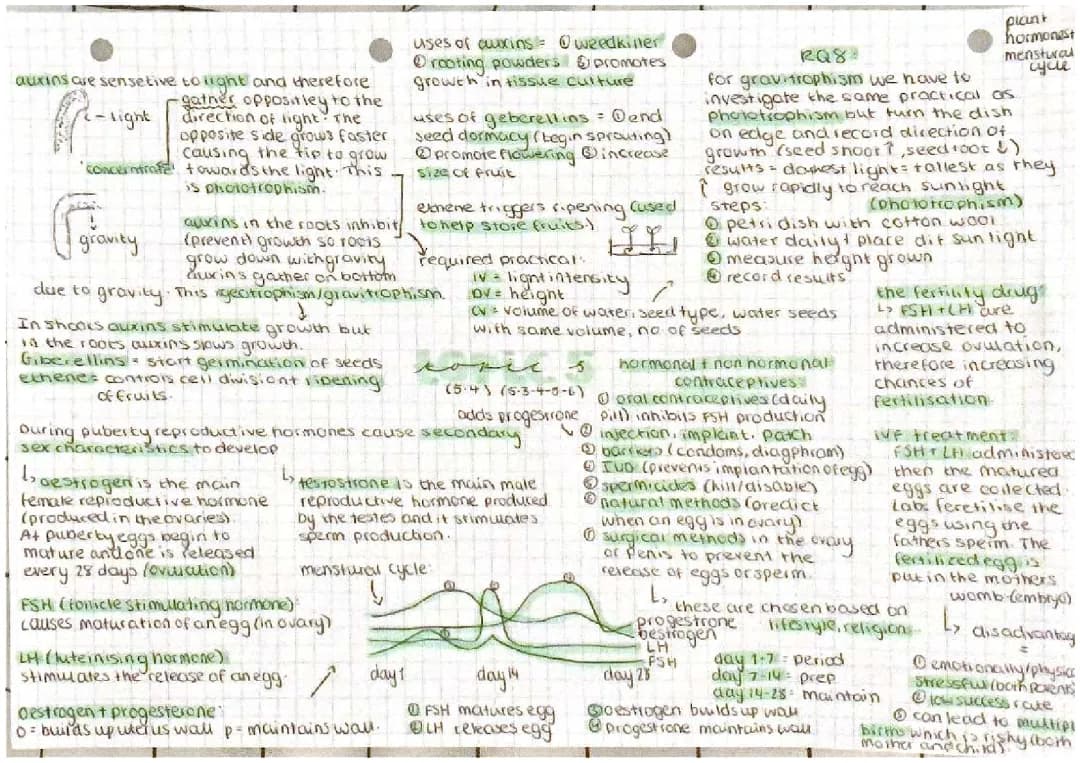 plant
hormones+
menstural
cycle
auxins are sensetive to light and therefore
gather oppositley to the
direction of light. The
opposite side grows faster
causing the tip to grow
towards the light. This
is phototrophism.
light
concentrate
gravity
auxins in the roots inhibit
(prevent) growth so roots
grow down with gravity
auxins gather on bottom
due to gravity. This is geotrophism/gravitrophism.
In shoots auxins stimulate growth but
in the roots auxins slows growth.
Giberellins = start germination of seeds
ethene = controls cell division + ripening
of fruits.
uses of auxins = ① weedkiller
② rooting powders ③ promotes
growth in tissue culture
uses of geberellins = ① end
seed dormacy (begin sprouting)
② promote flowering ③ increase
size of fruit
ethene triggers ripening (used
to help store fruits.)
required practical:
IV = light intensity
DV = height
CV = volume of water, seed type, water seeds
with same volume, no. of seeds
RQ8:
for gravitrophism we have to
investigate the same practical as
phototrophism but turn the dish
on edge and record direction of
growth (seed shoot ↑, seed root ↓)
results = darkest light = tallest as they
↑ grow rapidly to reach sunlight
steps: (phototrophism)
① petri dish with cotton wool
② water daily + place dif sunlight
③ measure height grown
④ record results
topic 5
(5.4) (5.3-4-5-6)
During puberty reproductive hormones cause secondary
sex characteristics to develop
↳ oestrogen is the main
female reproductive hormone
(produced in the ovaries).
At puberty eggs begin to
mature and one is released
every 28 days (ovulation)
↳ testostrone is the main male
reproductive hormone produced
by the testes and it stimulates
sperm production.
FSH (folicle stimulating hormone):
causes maturation of an egg (in ovary)
LH (luteinising hormone)
stimulates the release of an egg.
oestrogen + progesterone:
o = builds up uterus wall p = maintains wall.
menstural cycle:
progestrone
oestrogen
LH
FSH
day 1 day 14 day 28
① FSH matures egg
② LH releases egg
③ oestrogen builds up wall
④ progestrone maintains wall
day 1-7 = period
day 7-14 = prep
day 14-28 = maintain
hormonal + non hormonal
contraceptives:
adds progestrone
① oral contraceptives (daily
pill) inhibits FSH production
② injection, implant, patch
③ barriers (condoms, diagphram)
④ IUD (prevents implantation of egg)
⑤ spermicides (kill/disable)
⑥ natural methods (predict
when an egg is in ovary)
⑦ surgical methods in the ovary
or penis to prevent the
release of eggs or sperm.
↳ these are chosen based on
lifestyle, religion
the fertility drug:
↳ FSH + LH are
administered to
increase ovulation,
therefore increasing
chances of
fertilisation.
IVF treatment:
FSH + LH administered
then the matured
eggs are collected.
Labs feretilise the
eggs using the
fathers sperm. The
fertilized egg is
put in the mothers
womb (embryo)
↳ disadvantag
=
① emotionally/physica
stressful (both parents)
② low success rate
③ can lead to multipl
births which is risky (both
mother and child).